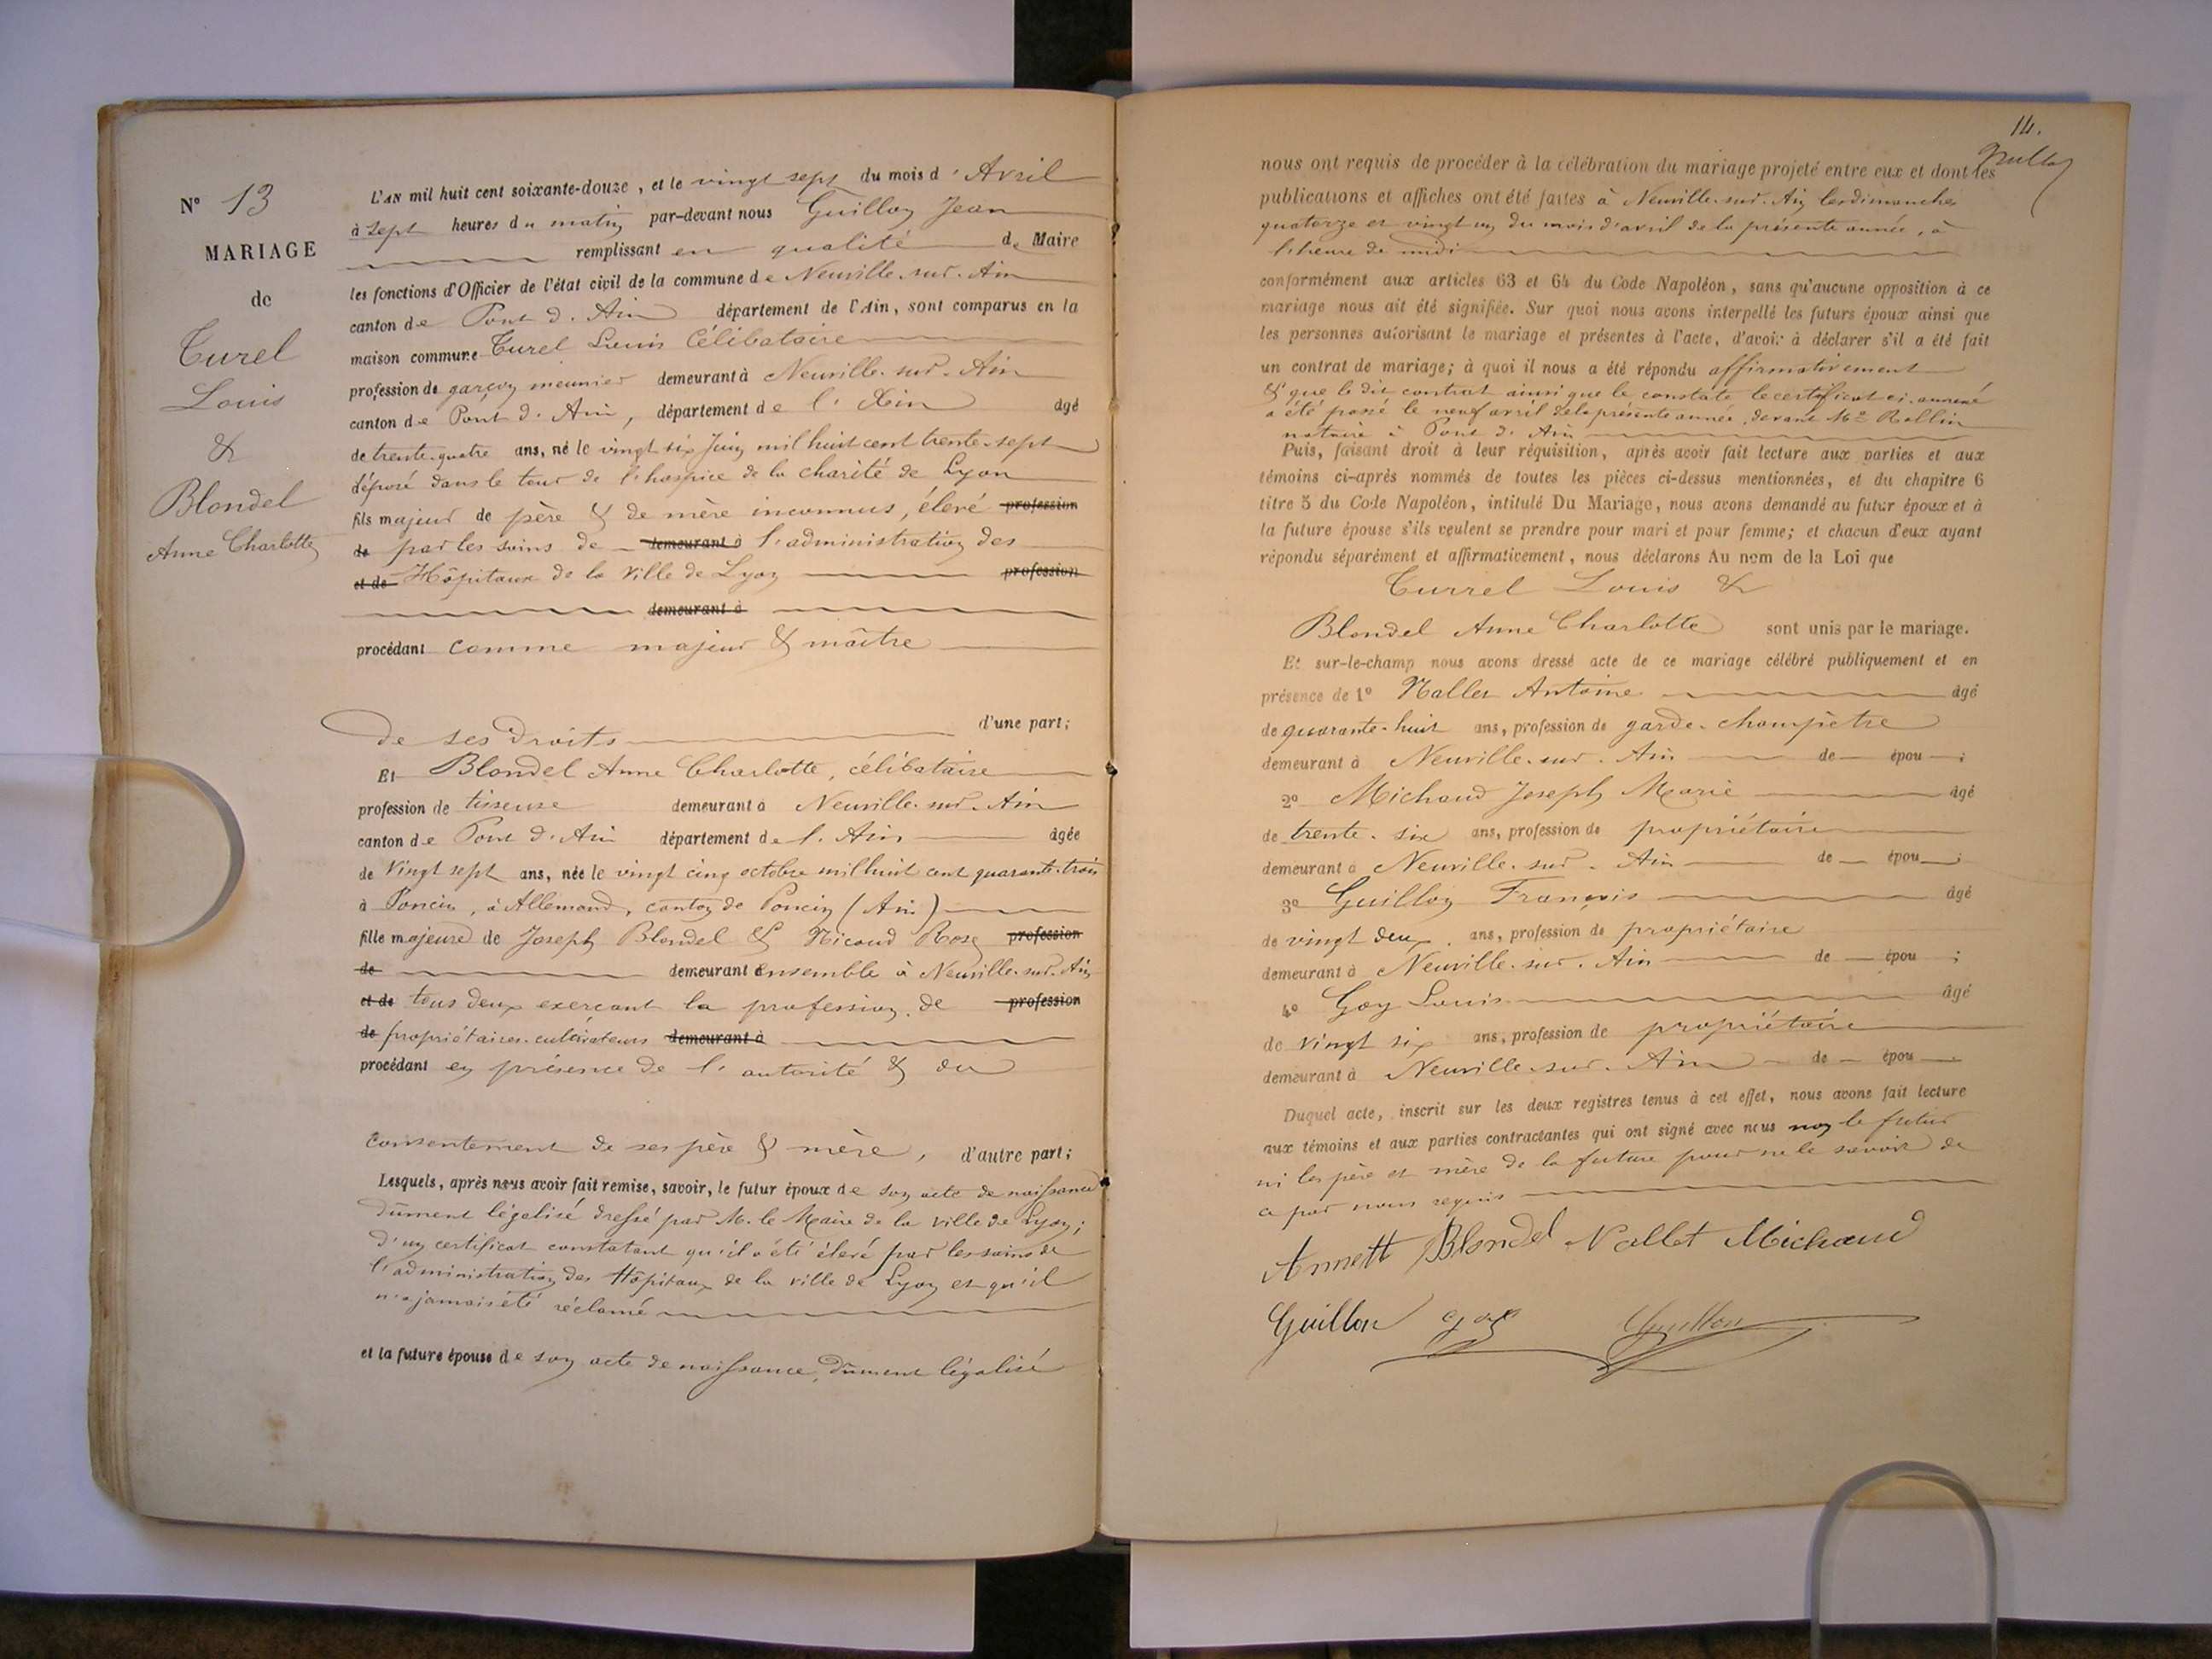 N° 13
MARIAGE
de
Turel
Louis
&
Blondel
Anne Charlotte
L'AN mil huit cent soixante-douze, et le vingt sept du mois d'Avril
à sept heures du matin par-devant nous Guillon Jean
remplissant en qualité de Maire
les fonctions d'Officier de l'état civil de la commune de Neuville-sur-Ain
canton de Pont d'Ain département de l'Ain, sont comparus en la
maison commune Turel Louis Célibataire
profession de garçon meunier demeurant à Neuville-sur-Ain
canton de Pont d'Ain, département de l'Ain âgé
de trente-quatre ans, né le vingt six Juin mil huit cent trente-sept
déposé dans le tour de l'hospice de la charité de Lyon
fils majeur de père & de mère inconnus, élevé profession
de par les soins de demeurant à l'administration des
et de Hôpitaux de la Ville de Lyon profession
demeurant à
procédant comme majeur & maître
de ses Droits d'une part;
Et Blondel Anne Charlotte, célibataire
profession de tisseuse demeurant à Neuville-sur-Ain
canton de Pont d'Ain département de l'Ain âgée
de Vingt sept ans, née le vingt cinq octobre mil huit cent quarante-trois
à Poncin, à Allemand, canton de Poncin (Ain)
fille majeure de Joseph Blondel & Nicoud Rose profession
de demeurant ensemble à Neuville-sur-Ain
et de tous deux exercant la profession de profession
de propriétaires-cultivateurs demeurant à
procédant en présence de l'autorité & du
consentement de ses père & mère, d'autre part;
Lesquels, après nous avoir fait remise, savoir, le futur époux de son acte de naissance
dûment légalisé dressé par M. le Maire de la ville de Lyon;
d'un certificat constatant qu'il a été élevé par les soins de
l'administration des Hôpitaux de la ville de Lyon et qu'il
n'a jamais été réclamé
et la future épouse de son acte de naissance, dûment légalisé
14.
nous ont requis de procéder à la célébration du mariage projeté entre eux et dont les
publications et affiches ont été faites à Neuville-sur-Ain les dimanches
quatorze et vingt un du mois d'avril de la présente année, à
l'heure de midi
conformément aux articles 63 et 64 du Code Napoléon, sans qu'aucune opposition à ce
mariage nous ait été signifiée. Sur quoi nous avons interpellé les futurs époux ainsi que
les personnes autorisant le mariage et présentes à l'acte, d'avoir à déclarer s'il a été fait
un contrat de mariage; à quoi il nous a été répondu affirmativement
& que le dit contrat ainsi que le constate le certificat ci-annexé
a été passé le neuf avril de la présente année, devant Me Rollin
notaire à Pont d'Ain
Puis, faisant droit à leur réquisition, après avoir fait lecture aux parties et aux
témoins ci-après nommés de toutes les pièces ci-dessus mentionnées, et du chapitre 6
titre 5 du Code Napoléon, intitulé Du Mariage, nous avons demandé au futur époux et à
la future épouse s'ils veulent se prendre pour mari et pour femme; et chacun d'eux ayant
répondu séparément et affirmativement, nous déclarons Au nom de la Loi que
Turrel Louis &
Blondel Anne Charlotte sont unis par le mariage.
Et sur-le-champ nous avons dressé acte de ce mariage célébré publiquement et en
présence de 1° Nallet Antoine âgé
de quarante-huit ans, profession de garde-champêtre
demeurant à Neuville-sur-Ain de épou ;
2° Michaud Joseph Marie âgé
de trente-six ans, profession de propriétaire
demeurant à Neuville-sur-Ain de épou ;
3° Guillon François âgé
de vingt deux ans, profession de propriétaire
demeurant à Neuville-sur-Ain de épou ;
4° Goy Louis âgé
de vingt six ans, profession de propriétaire
demeurant à Neuville-sur-Ain de épou
Duquel acte, inscrit sur les deux registres tenus à cet effet, nous avons fait lecture
aux témoins et aux parties contractantes qui ont signé avec nous non le futur
ni les père et mère de la future pour ne le savoir de
ce par nous requis
Annett Blondel Nallet Michaud
Guillon Goy Guillon